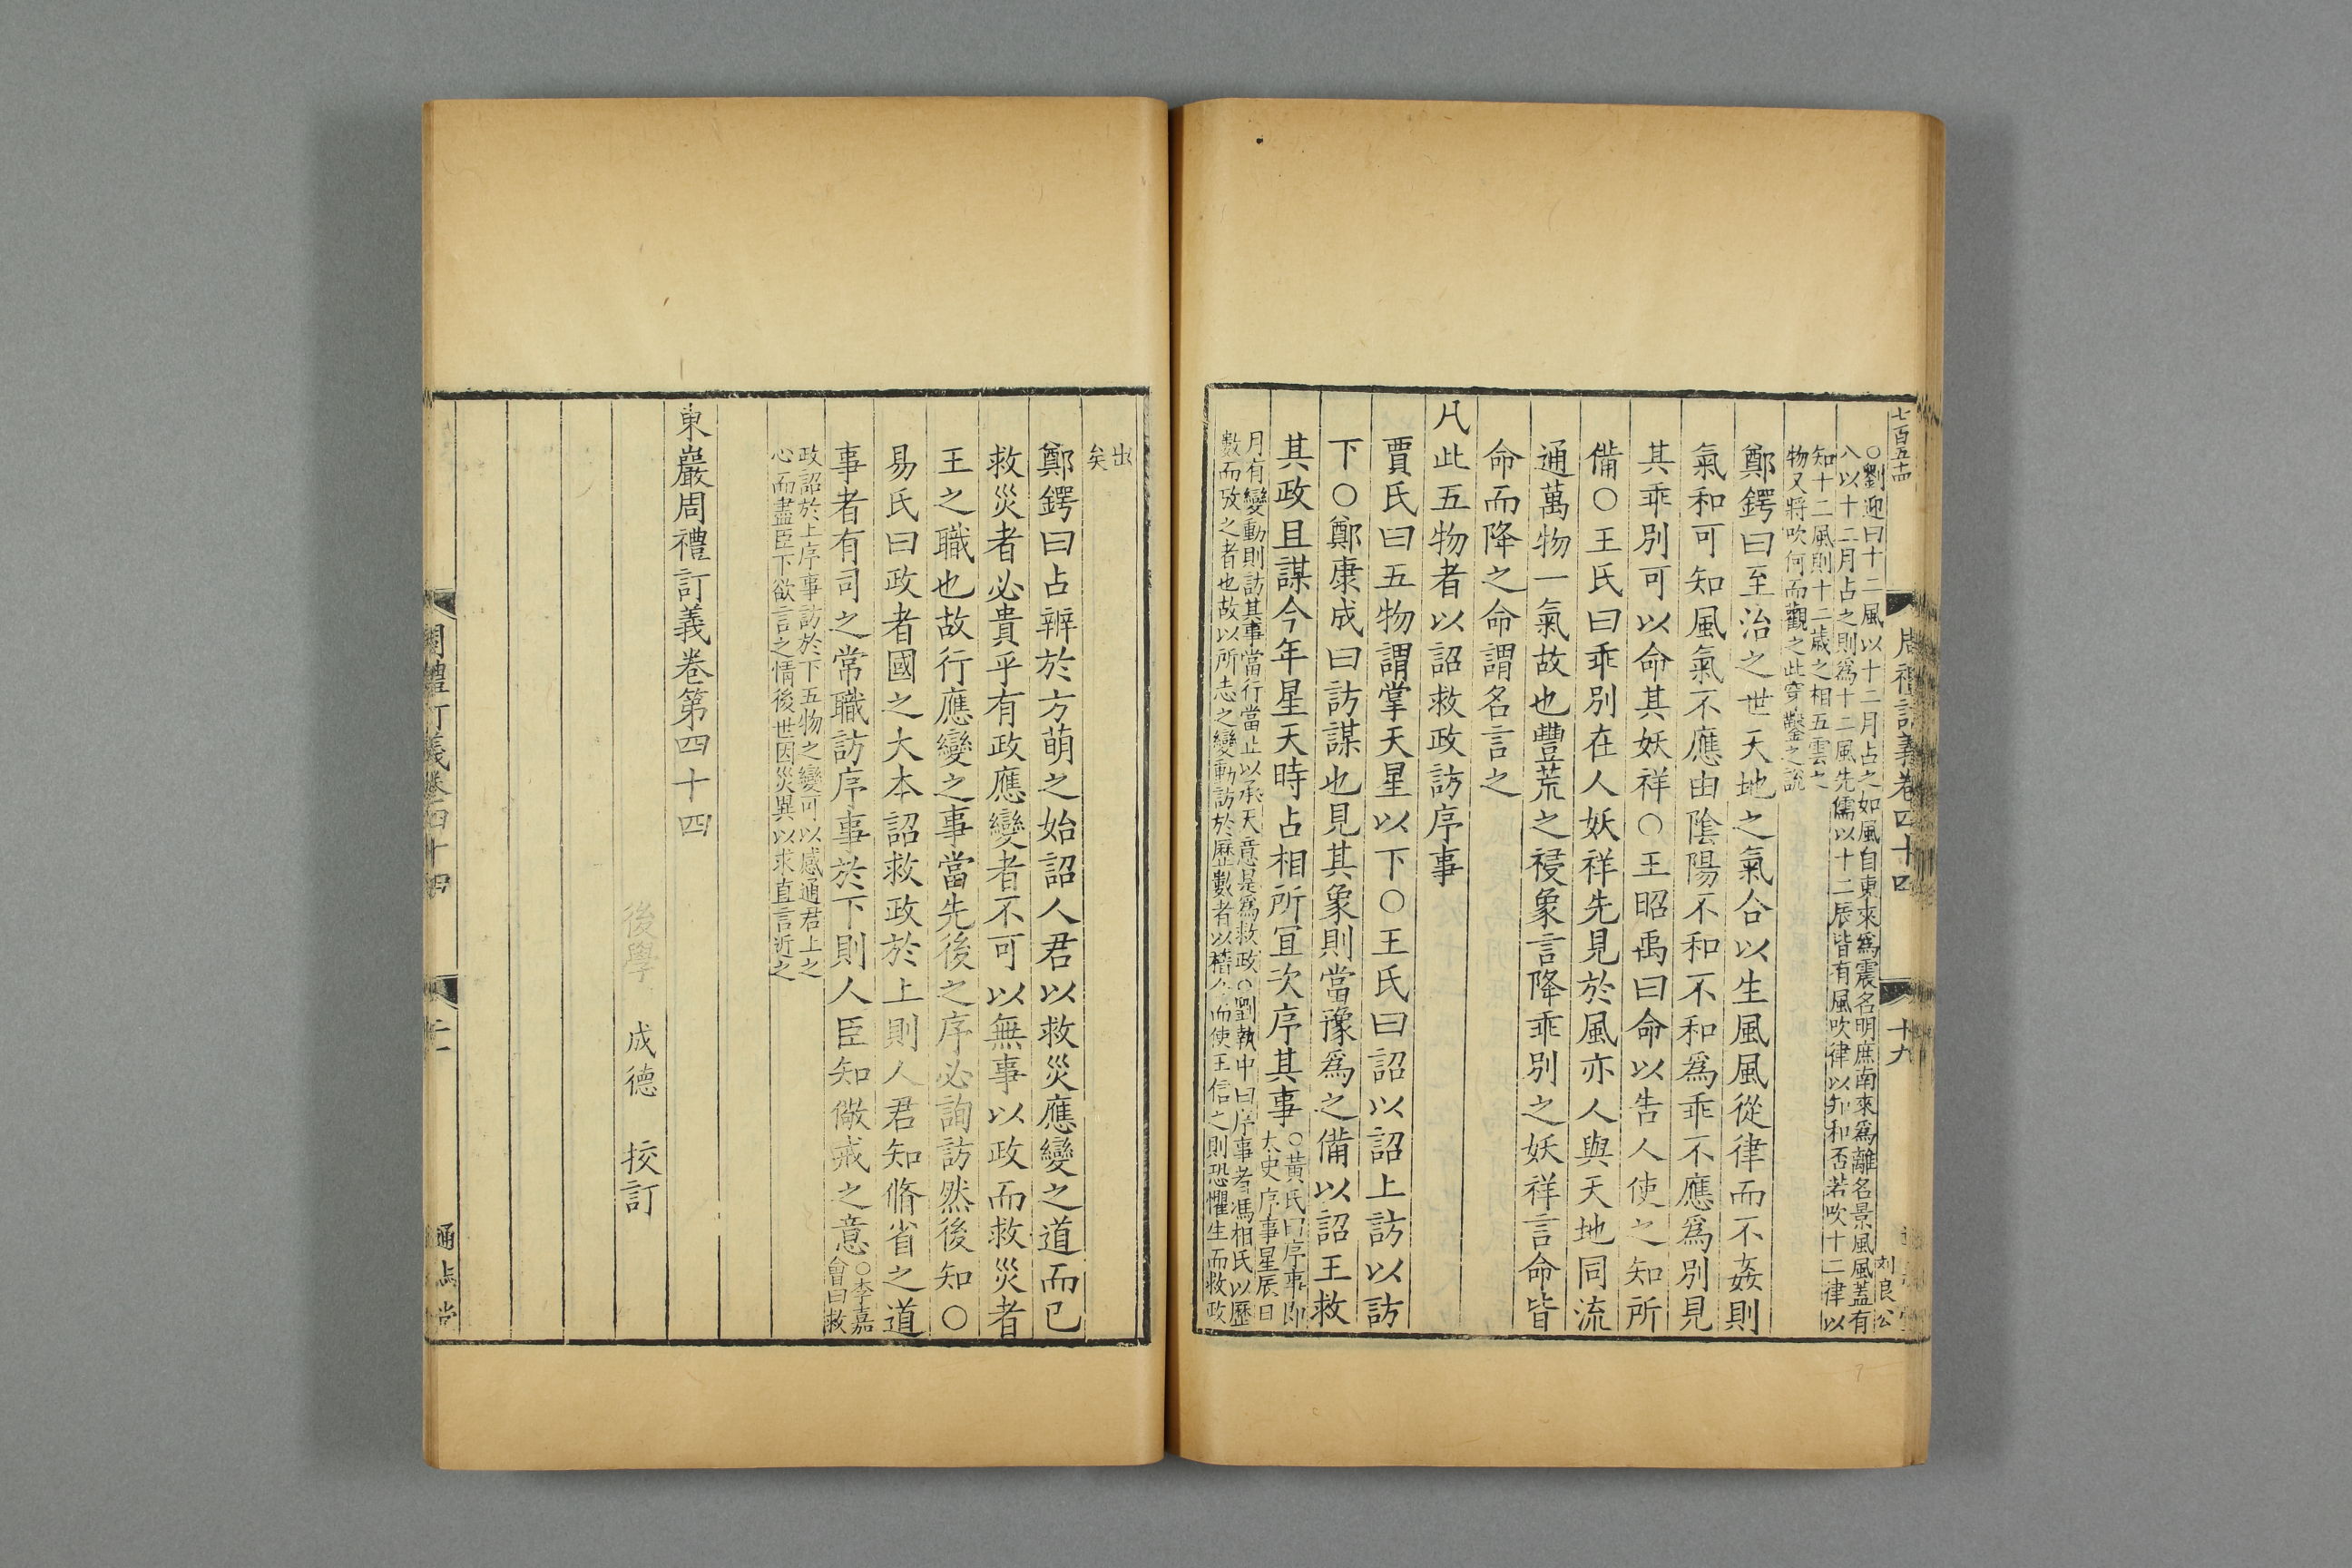 七百五十四
周禮訂義卷四十四
十九
刘良公
○劉迎曰十二風以十二月占之如風自東來爲震名明庶南來爲離名景風風蓋有
八以十二月占之則爲十二風先儒以十二辰皆有風吹律以知和否若吹十二律以
知十二風則十二歲之相五雲之
物又將吹何而觀之此穿鑿之說
鄭鍔曰至治之世天地之氣合以生風風從律而不姦則
氣和可知風氣不應由陰陽不和不和爲乖不應爲別見
其乖別可以命其妖祥○王昭禹曰命以告人使之知所
備○王氏曰乖別在人妖祥先見於風亦人與天地同流
通萬物一氣故也豐荒之祲象言降乖別之妖祥言命皆
命而降之命謂名言之
凡此五物者以詔救政訪序事
賈氏曰五物謂掌天星以下○王氏曰詔以詔上訪以訪
下○鄭康成曰訪謀也見其象則當豫爲之備以詔王救
其政且謀今年星天時占相所宜次序其事
○黃氏曰序事即
太史序事星辰日
月有變動則訪其事當行當止以承天意是爲救政○劉執中曰序事者馮相氏以歷
數而攷之者也故以所志之變動訪於歷數者以稽合而使王信之則恐懼生而救政
出
矣
鄭鍔曰占辨於方萌之始詔人君以救災應變之道而已
救災者必貴乎有政應變者不可以無事以政而救災者
王之職也故行應變之事當先後之序必詢訪然後知○
易氏曰政者國之大本詔救政於上則人君知脩省之道
事者有司之常職訪序事於下則人臣知儆戒之意
○李嘉
會曰救
政詔於上序事訪於下五物之變可以感通君上之
心而盡臣下欲言之情後世因災異以求直言近之
東巖周禮訂義卷第四十四
後學 成德 挍訂
周禮訂義卷四十四
二十
通志堂